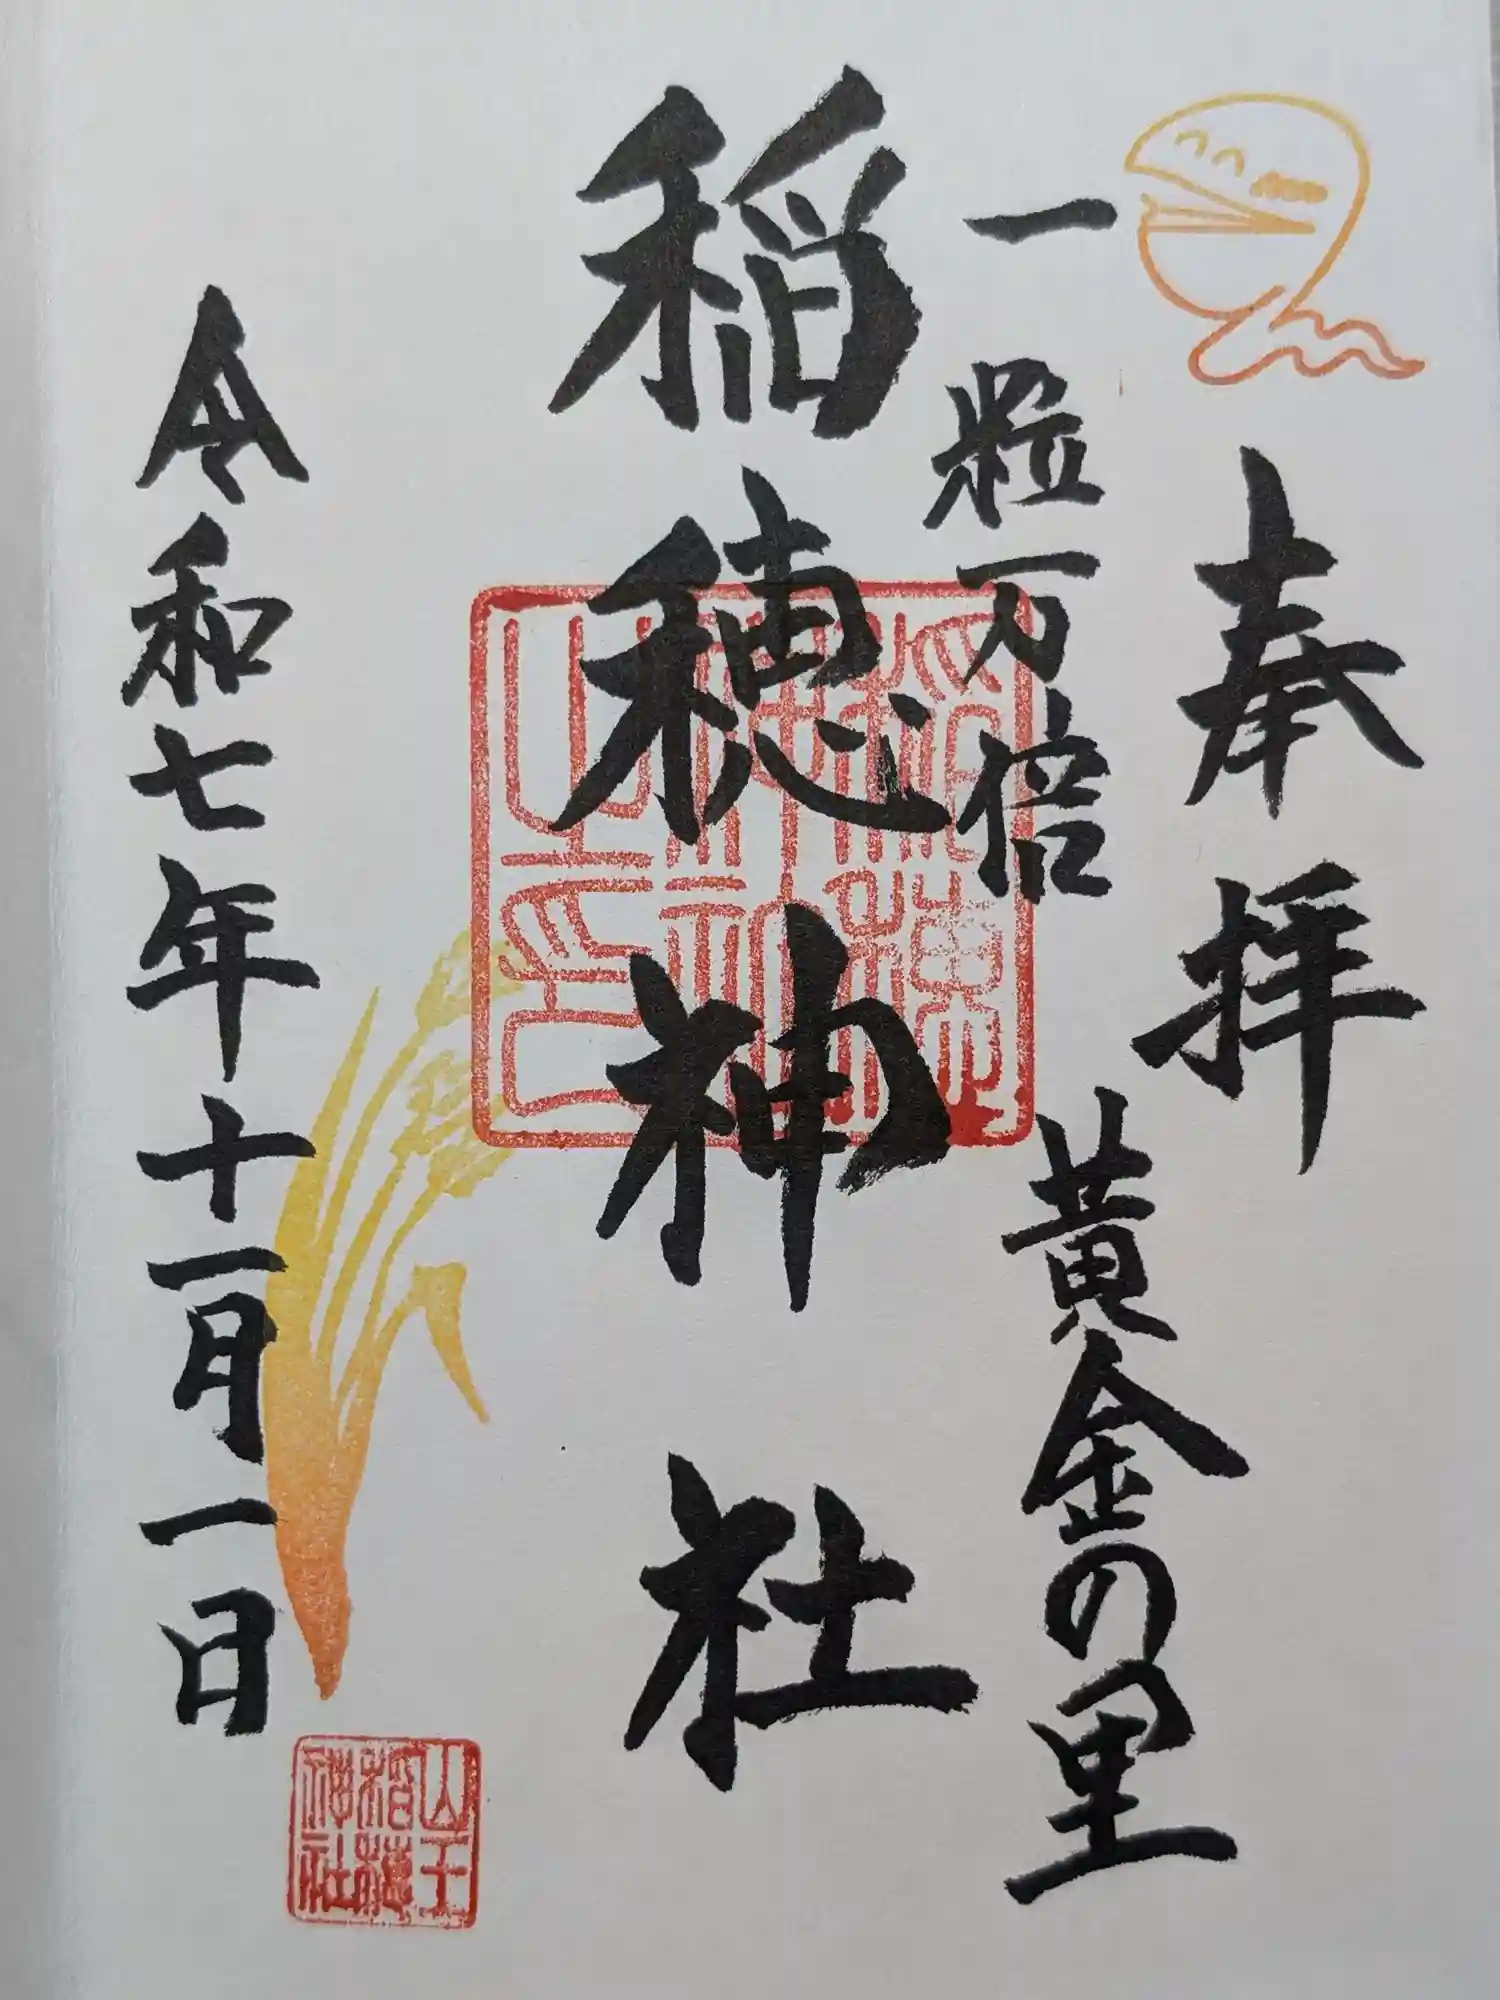 奉拝
黄金の里
一粒万倍
稲穂神社
令和七年十一月一日
稲穂神社之印
山王稲穂神社